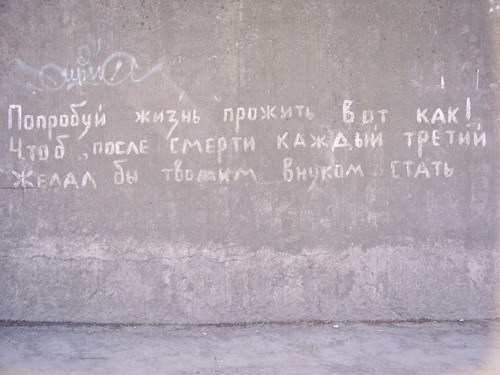 Попробуй жизнь прожить вот как!
Чтоб после смерти каждый третий
желал бы твоим внуком стать